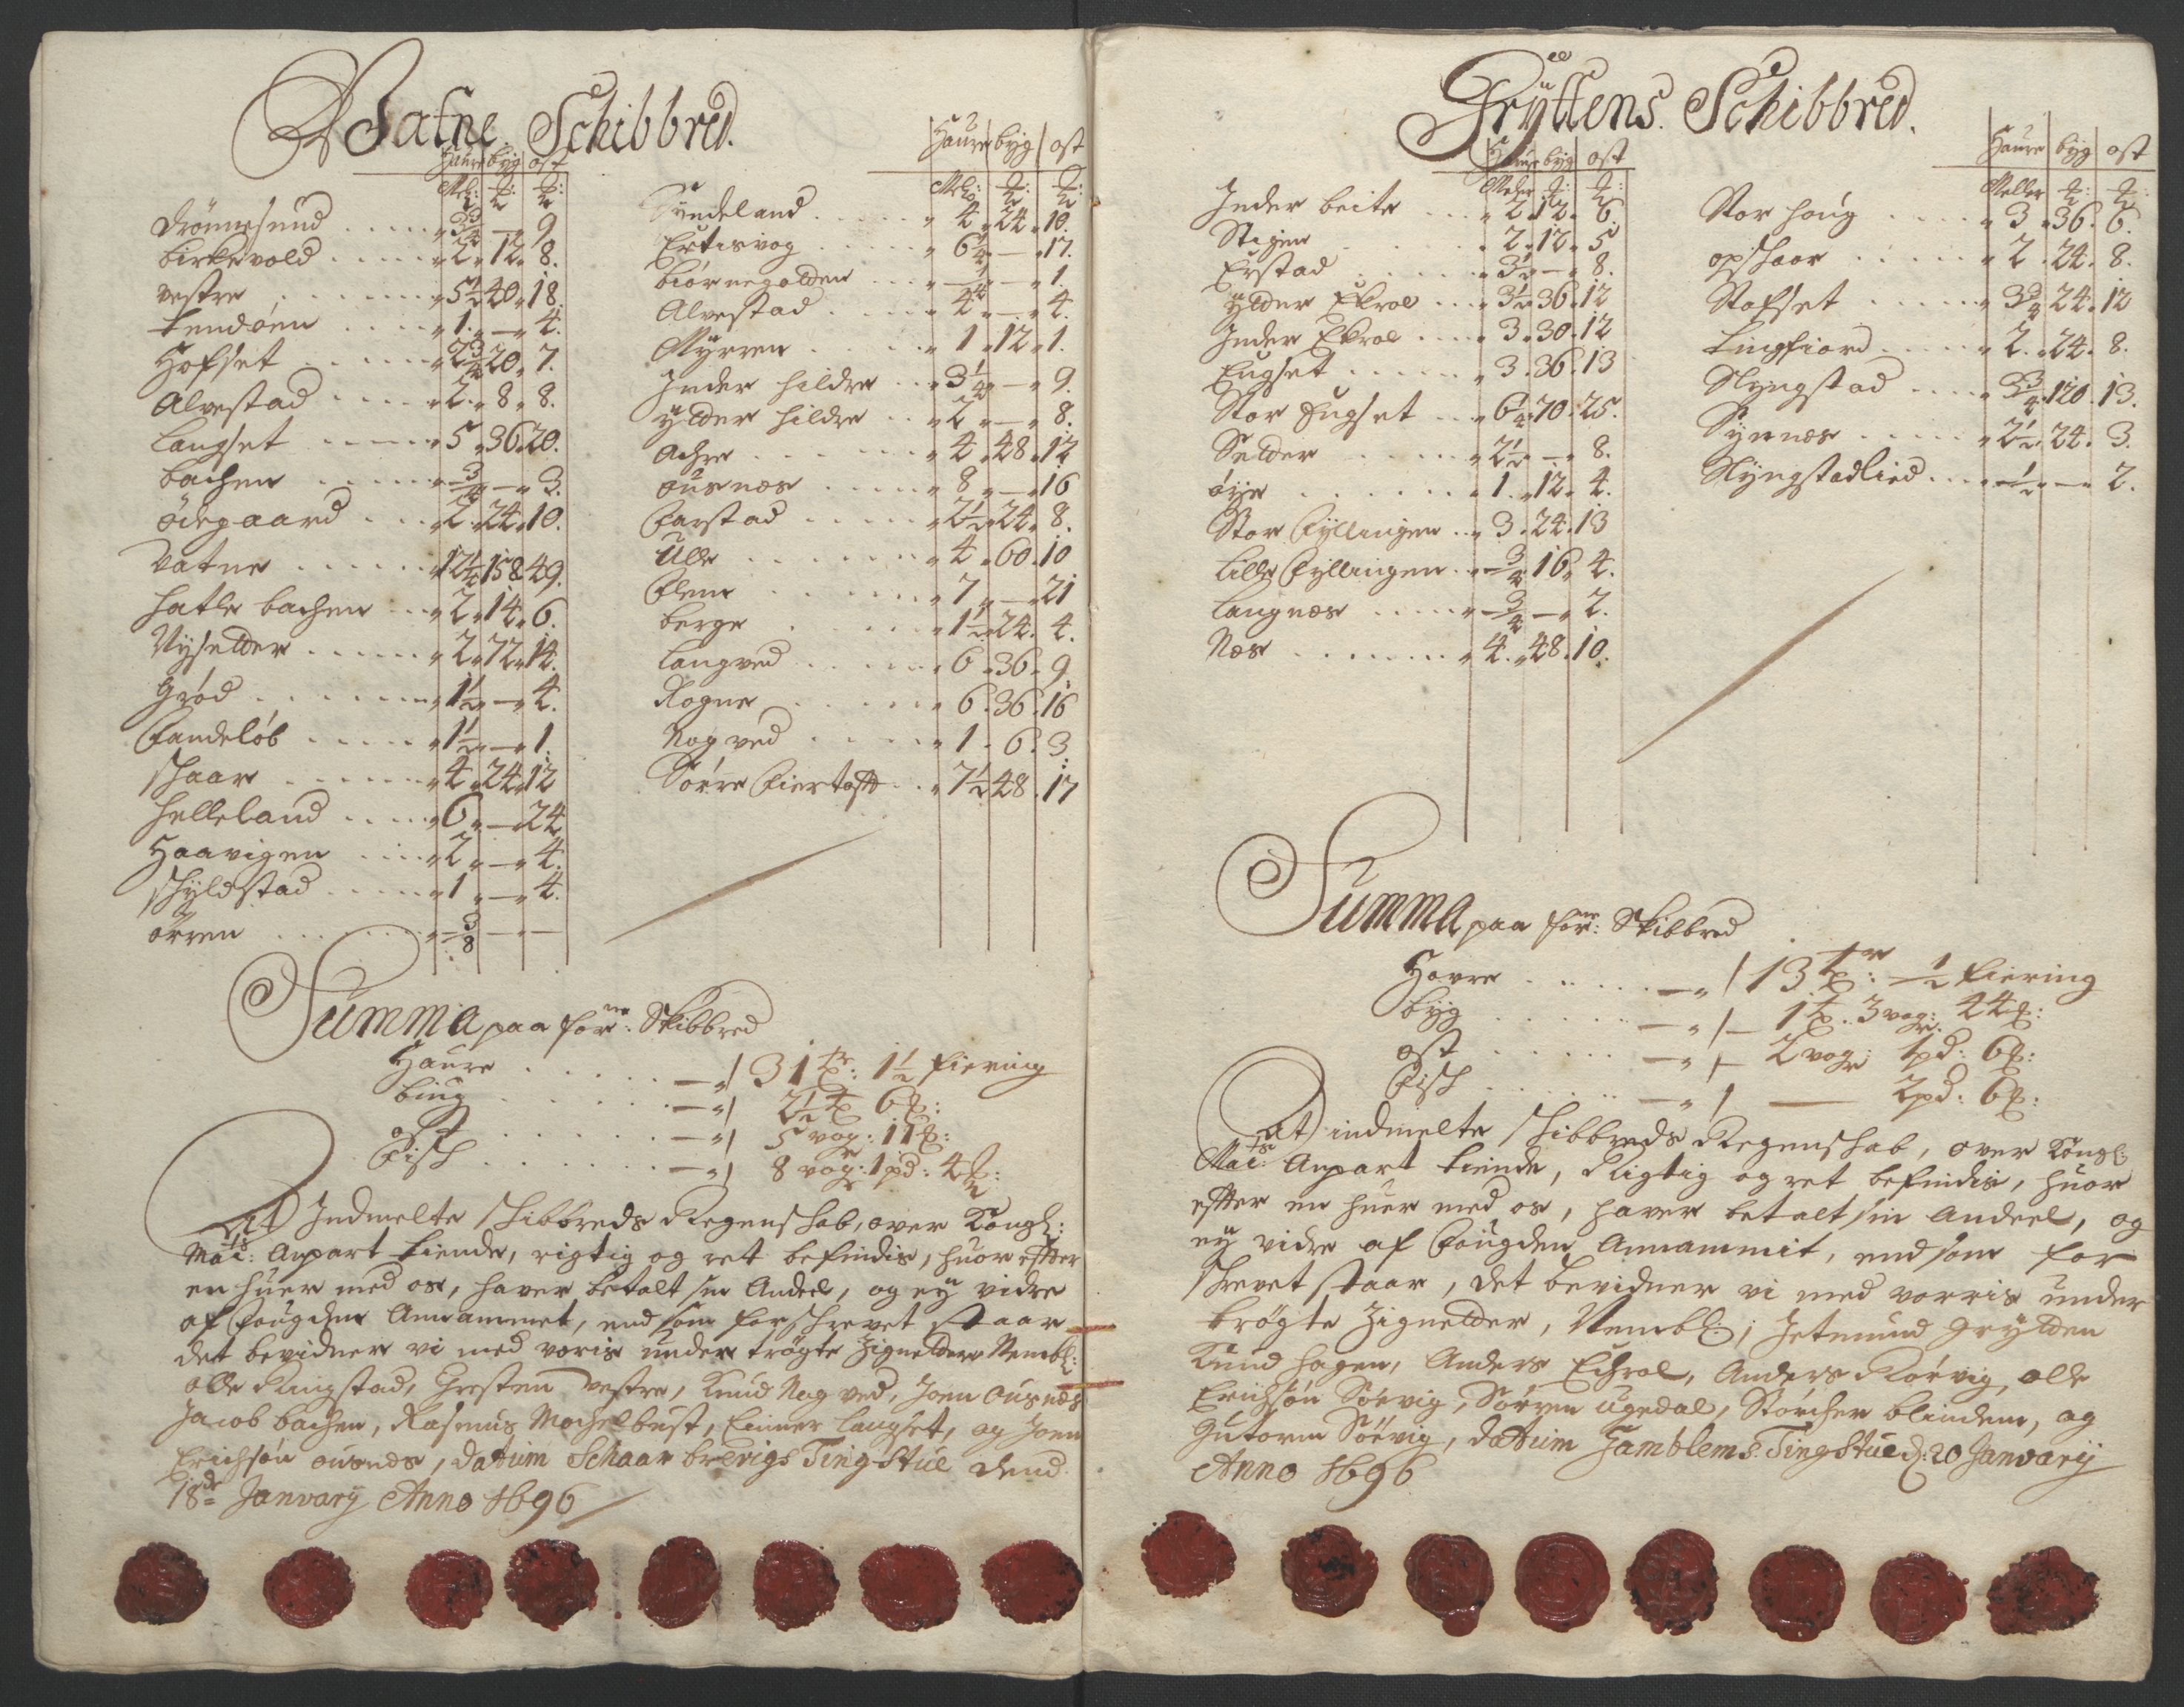 Vatne Schibbred.
Haure byg ost
Mel: ℔: ℔:
Drönnesund . . . . . 3¾ — 9
Birkevold . . . . . 2 . 12 . 8.
Vestre . . . . . 5½ 40 . 18.
Tendöen . . . . 1. — 4.
Hofset . . . . . 2¾ 20 . 7.
Alvestad . . . . 2. 8. 8.
Langset . . . . . 5 . 36 . 20.
Bachen . . . . . ¾ — 3.
Ödegaard . . . 2. 24. 10.
Vatne . . . . . 12¼ 158 49.
Hatle bachen . . . 2. 14. 6.
Nÿsetter . . . . . 2. 72. 14.
Gröd . . . . . . 1½ — 4.
Fandelöb . . . . . 1½ — 1.
Schaar . . . . . . 4. 24. 12
Helleland . . . . . 6. — 24
Haavigen . . . . 2. — 4.
Schÿldstad . . . . . 1 — 4.
Örren . . . . . . ⅜ — —
Haure byg ost
Mel: ℔: ℔:
Sÿndeland . . . . . 4. 24. 10.
Eutisvog . . . . . 6¼ — 17.
Biörnegolden . . . — ¼ — 1.
Alvestad . . . . . 4 — 4.
Mÿrren . . . . . 1 . 12 . 1.
Inder hildre . . . 3¼ — 9.
ÿtder hildre . . . 2 — 8.
Achre . . . . . . 4. 48. 12
Ousnæs . . . . . 8 — 16
Farstad . . . . . 2½ 24. 8.
Ulle . . . . . . 4. 60. 10
Flem . . . . . . 7 — 21
Berge . . . . . 1½ 24. 4.
Langved . . . . . 6 . 36. 9.
Rogne . . . . . 6. 36. 16
Nogved . . . . . 1. 6. 3.
Sörre Fiertoft . . . 7½ 48. 17
Summa paa forne: Skibbred
Haure . . . . . — 31 tr: 1½ fiering
Biug . . . . . — 2½ t 6 ℔:
Ost . . . . . — 5 vog: 11 ℔:
Fisch . . . . . — 8 vog: 1 pd: 4 ℔:
At Indmelte Schibbreds Regenschab, over Kongl:
Maits: Anpart tiende, rigtig og ret befindis, huor effter
en huer med os, haver betalt sin Andeel, og eÿ vidre
af Fougden Annammet, end som forschrevet staar
det bevidner vi med voris under trÿgte Zignetter, Nembl:
Olle Ringstad, Gresten Vestre, Knud Nogved, Joen Ousnæs
Jacob bachen, Rasmus Mochelbust, Einner Langset, og Joen
Erichsön ousnæs, datum Schaar brevigs Ting Stue dend
18de Januarÿ Anno 1696
Grÿttens Schibbred.
Haure byg ost
Meler ℔: ℔:
Inder beite . . . 2. 12. 6.
Stigen . . . . . 2. 12. 5
Erstad . . . . . 3½ — 8.
ÿtder Ekrol . . . 3½ 36. 12
Inder Ekrol . . . 3. 30. 12
Eugset . . . . . 3. 36. 13
Stor Eugset . . . 6¼ 70. 25.
Setter . . . . . 2½ — 8.
Öÿe . . . . . . 1. 12. 4.
Stor Fÿllingen . . 3. 24. 13
Lille Fÿllingen . . ¾ 16. 4.
Langnæs . . . . . ¾ — 2.
Næs . . . . . . 4. 48. 10.
Haure byg ost
Meller ℔: ℔:
Stor houg . . . . . 3. 36. 6.
Opschaar . . . . . 2. 24. 8.
Stafset . . . . . 3¾ 24. 12
Lingfiord . . . . . 2. 24. 8.
Slÿngstad . . . . 3¾ 120. 13.
Sÿnnæs . . . . . 2½ 24. 3.
Slÿngstadlied . . . ½ — 2.
Summa paa forne: Skibbred
Havre . . . . — 13 tr: — ½ fiering
Byg . . . . — 1 t. 3 vog: 44 ℔:
Ost . . . . — 2 vog: 1 pd: 6 ℔:
Fisch . . . . — 2 pd: 6 ℔:
At indmelte Schibbreds Regenschab, over Kongl:
Maits: Anpart tiende, Rigtig og ret befindis, huor
effter en huer med os, haver betalt sin Andeel, og
eÿ vidre af Fougden Annammit, end som for
schrevet staar, det bevidner vi med vorris under
trögte Zignetter, Nembl:, Jetmund Grÿtten
Knud hagen, Anders Echrol, Anders Rörvig, olle
Erichsön Sörvig, Sörren Ugedal, Storcher blindem, og
Gutorm Sörvig, datum Hamblems Ting Stue d: 20 Januarÿ
Anno 1696